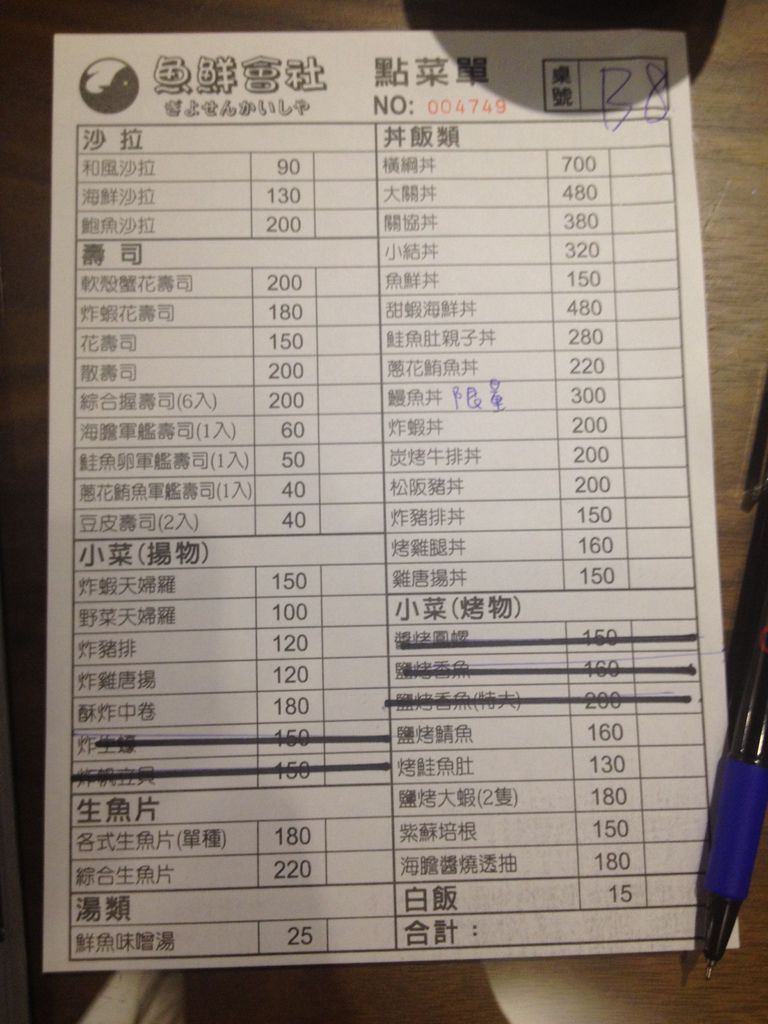 魚鮮會社
ぎょせんかいしゃ
點菜單
NO: 004749
桌號 B8
沙拉
和風沙拉 90
海鮮沙拉 130
鮑魚沙拉 200
壽司
軟殼蟹花壽司 200
炸蝦花壽司 180
花壽司 150
散壽司 200
綜合握壽司(6入) 200
海膽軍艦壽司(1入) 60
鮭魚卵軍艦壽司(1入) 50
蔥花鮪魚軍艦壽司(1入) 40
豆皮壽司(2入) 40
小菜(揚物)
炸蝦天婦羅 150
野菜天婦羅 100
炸豬排 120
炸雞唐揚 120
酥炸中卷 180
炸生蠔 150
炸帆立貝 150
生魚片
各式生魚片(單種) 180
綜合生魚片 220
湯類
鮮魚味噌湯 25
丼飯類
橫綱丼 700
大關丼 480
關協丼 380
小結丼 320
魚鮮丼 150
甜蝦海鮮丼 480
鮭魚肚親子丼 280
蔥花鮪魚丼 220
鰻魚丼 限量 300
炸蝦丼 200
炭烤牛排丼 200
松阪豬丼 200
炸豬排丼 150
烤雞腿丼 160
雞唐揚丼 150
小菜(烤物)
醬烤圓螺 150
鹽烤香魚 160
鹽烤香魚(特大) 200
鹽烤鯖魚 160
烤鮭魚肚 130
鹽烤大蝦(2隻) 180
紫蘇培根 150
海膽醬燒透抽 180
白飯 15
合計：